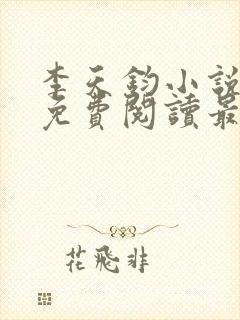 李天鈞小說
免費閱讀最
花飛非